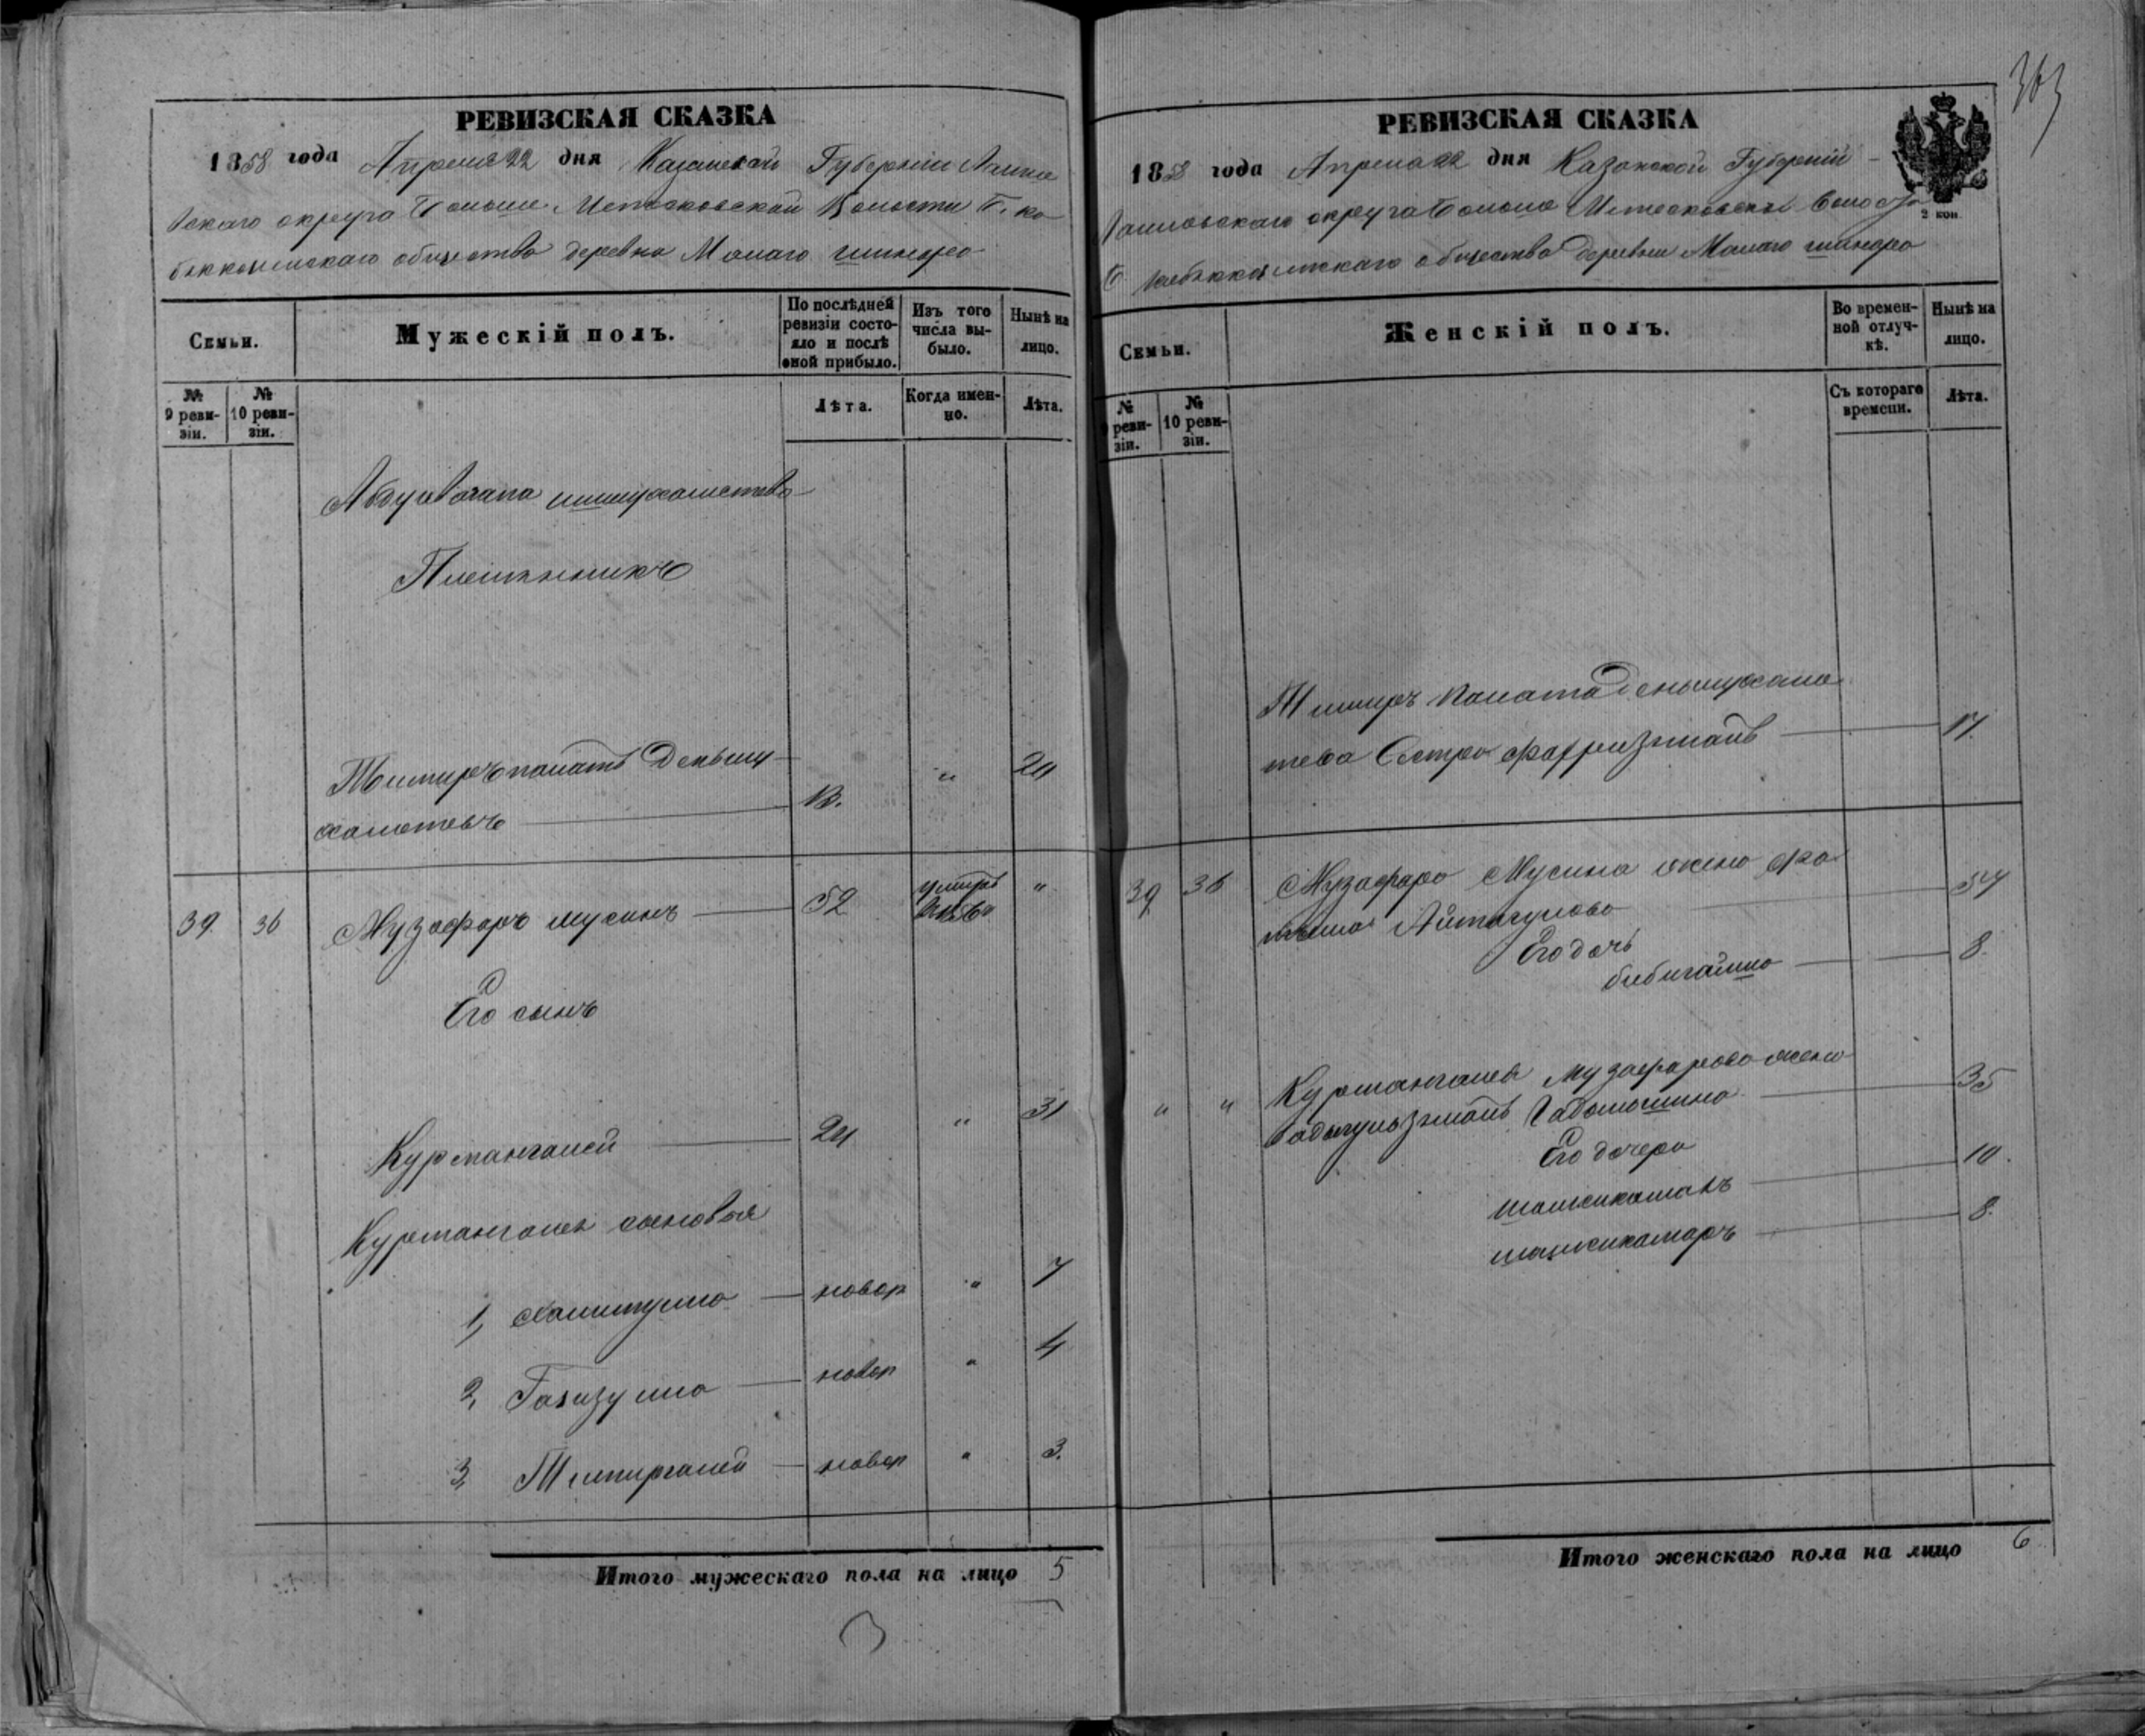 РЕВИЗСКАЯ СКАЗКА
1858 года Апреля 22 дня Казанской Губернии Лаише
вскаго округа Больше Метесковской Волости Б. ко
беккозинскаго общества деревна Малаго шинаро
Семьи.
Мужескій полъ.
По послѣдней ревизіи состояло и послѣ оной прибыло.
Изъ того числа выбыло.
Нынѣ на лицо.
№ 9 ревизіи.
№ 10 ревизіи.
Лѣта.
Когда именно.
Лѣта.
Абдулвагапа
Племянникъ
Темирчпалатъ Деньму
хаметевъ 13. " 24
39. 36 Музафаръ мусинъ 52 умеръ "
Его сынъ
Курмангалей 24 " 31
Курмангалея сыновья
1, новор " 7
2, новор " 4
3, Темиргалей новор " 3.
Итого мужескаго пола на лицо 5
363
РЕВИЗСКАЯ СКАЗКА
1858 года Апреля 22 дня Казанской Губерніи
Лаишевскаго округа Больше Метесковской Волости
Б. общества деревни Малаго шинаро
2 коп.
Семьи.
Женскій полъ.
Во временной отлучкѣ.
Нынѣ на лицо.
№ 9 ревизіи.
№ 10 ревизіи.
Съ котораго времени.
Лѣта.
Темиръ Палата Деньмухаме
тева Сестра 17
39 36 Музафара Мусина жена Фа
Айтагулова 54
Его дочь
бибигайша 8.
" " Курмангалея Музафарова жена
35
Его дочери
10.
шамсикамаръ 8.
Итого женскаго пола на лицо 6